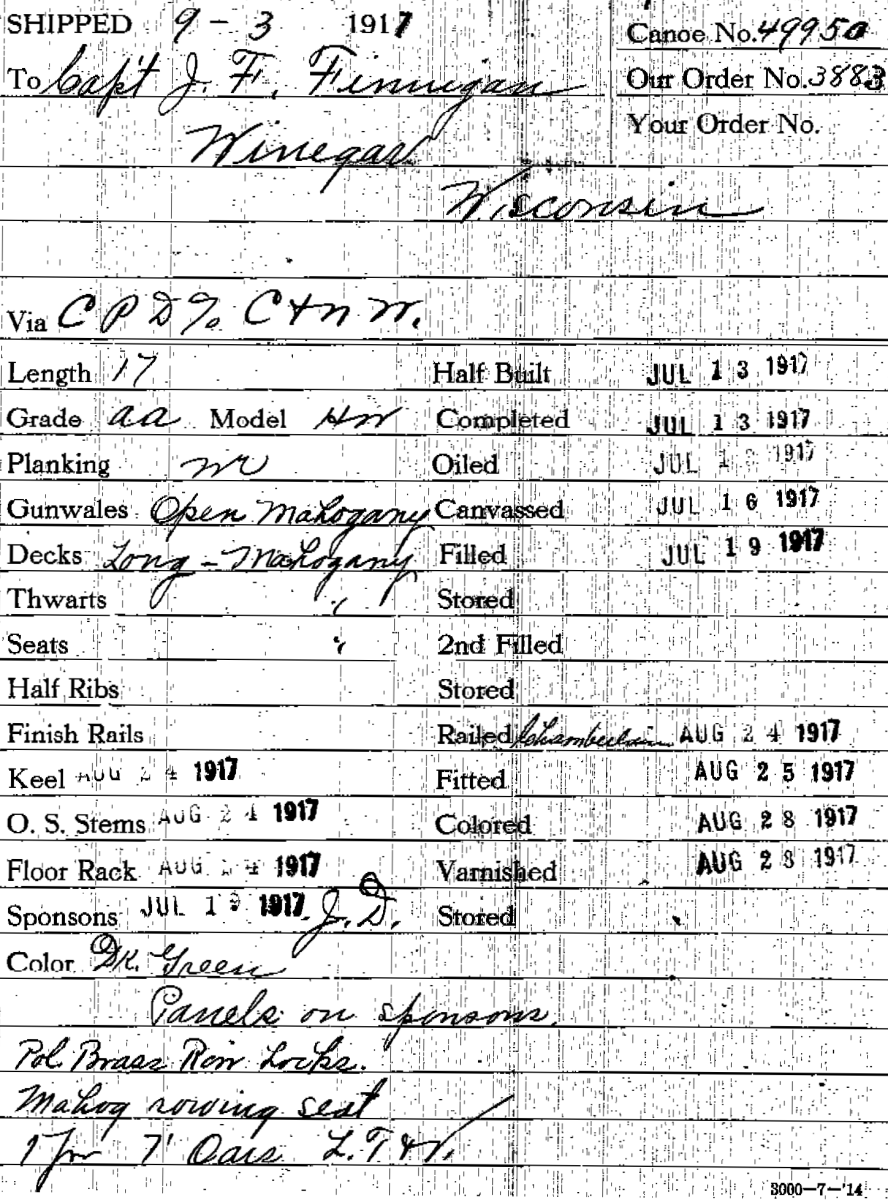 SHIPPED 9 - 3 1917 Canoe No. 49950
To Capt J. F. Finnigan Our Order No. 3883
Winegar Your Order No.
Wisconsin
Via C P D % C + N W.
Length 17 Half Built JUL 13 1917
Grade AA Model HW Completed JUL 13 1917
Planking WC Oiled JUL 1 1917
Gunwales Open Mahogany Canvassed JUL 16 1917
Decks Long - Mahogany Filled JUL 19 1917
Thwarts " Stored
Seats " 2nd Filled
Half Ribs Stored
Finish Rails Railed Chamberlain AUG 24 1917
Keel AUG 24 1917 Fitted AUG 25 1917
O. S. Stems AUG 24 1917 Colored AUG 28 1917
Floor Rack AUG 24 1917 Varnished AUG 28 1917
Sponsons JUL 19 1917 J. D. Stored
Color Dk. Green
Panels on sponsons.
Pol Brass Row Locks.
Mahog rowing seat
1 pr 7' Oars L. T & V.
3000-7-'14